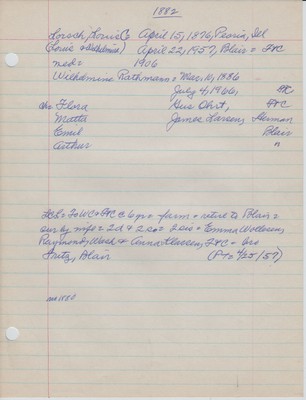 1882
Dorsch, Louis C April 15, 1876, Peoria, Ill
(Louis & Wilhelmina) April 22, 1957, Blair = FtC
med = 1906
Wilhelmine Rathmann = Mar. 10, 1886
July 4, 1966, FtC
ch = Flora Gus Ohrt, FtC
Matta James Larsen, Herman
Emil Blair
Arthur "
FCL = To WC + FtC @ 6 yr = farm = retire to Blair =
sur by mfe = 2d & 2 so = 2 sis = Emma
Raymond, Wash & Anna Klassen, FtC = bro
Fritz, Blair (PT = 4/25/57)